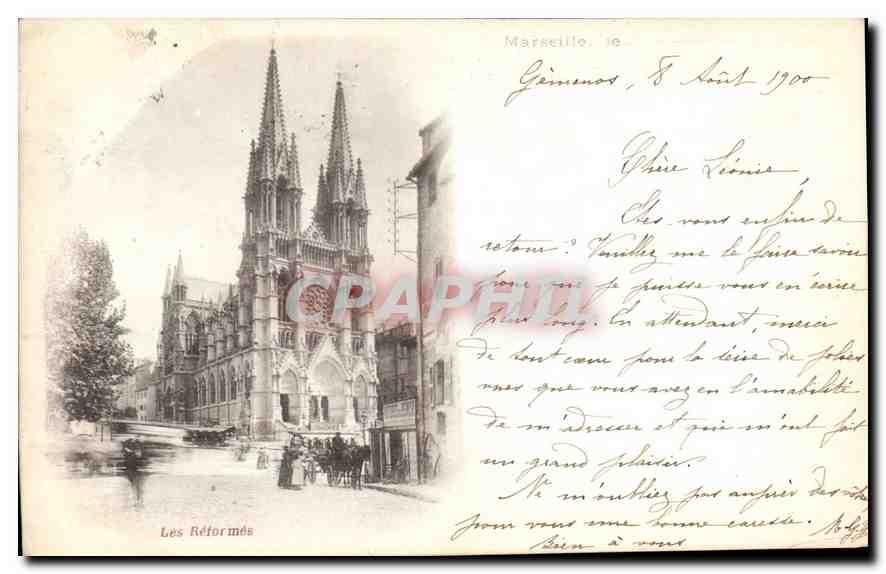 Marseille, le
Gémenos, 8 Août 1900
Chère Léonie,
Etes-vous enfin de
retour? Veuillez me le faire savoir
pour que je puisse vous en écrire
plus long. En attendant, merci
de tout cœur pour la série de jolies
vues que vous avez eu l'amabilité
de m'adresser et qui m'ont fait
un grand plaisir.
Ne m'oubliez pas auprès des vôtres
pour vous une bonne caresse.
Bien à vous
CARPHIL
Les Réformés